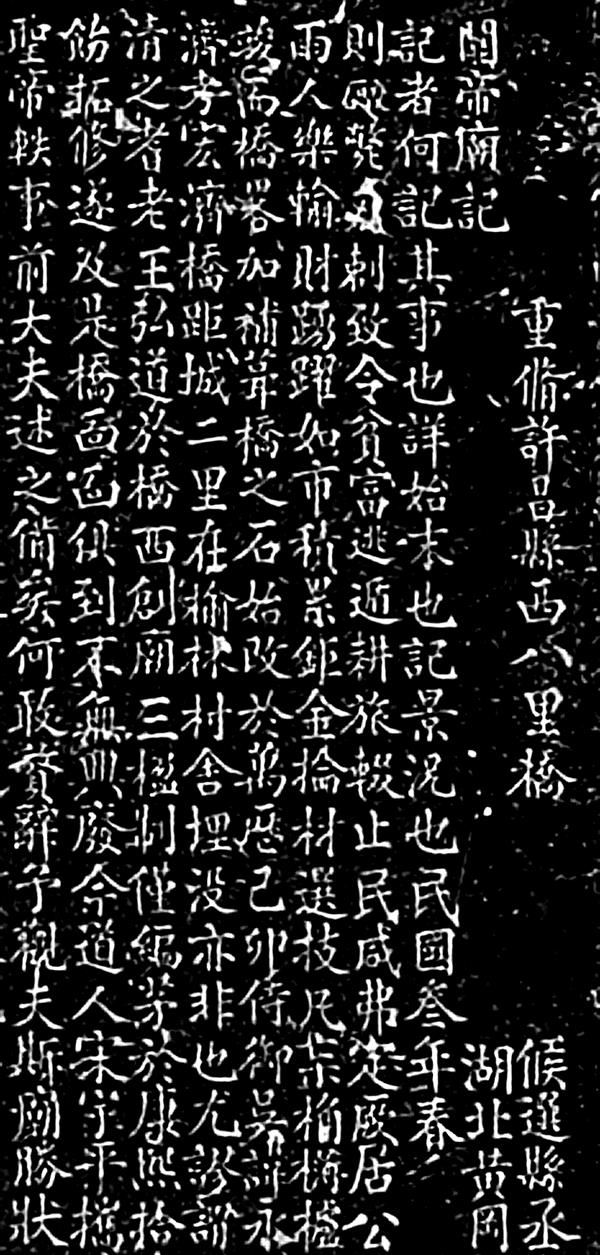 重脩許昌縣西八里橋 候選縣丞
關帝廟記 湖北黄岡
記者何記其事也詳始末也記景況也民國叁年春
則甏剌致令貧富逃遁耕旅輟止民咸弗定厥居公
雨人樂輸財踴躍如市積累鉅金掄材選技凡桷櫨
竣而橋畧加補葺橋之石始改於萬歷己卯侍御吴訥永
濟考宏濟橋距城二里在榆林村舍埋没亦非也尤謬謂
清之耆老王弘道於橋西創廟三楹制僅編茅於康熙拾
飭拓修遂及是橋面面俱到不無興廢今道人宋宇平携
聖帝軼事前大夫述之備矣何敢贅辭予觀夫斯廟勝狀